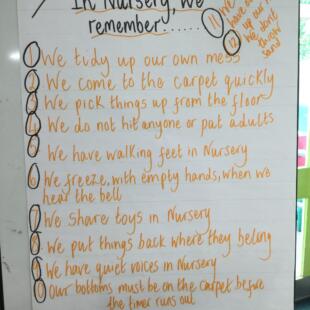 In Nursery, we
remember......
1 We tidy up our own mess
2 We come to the carpet quickly
3 We pick things up from the floor
4 We do not hit anyone or pat adults
5 We have walking feet in Nursery
6 We freeze, with empty hands, when we
hear the bell
7 We share toys in Nursery
8 We put things back where they belong
9 We have quiet voices in Nursery
Our bottoms must be on the carpet before
the timer runs out
11 We
have
up our
12 We don't
throw
sand